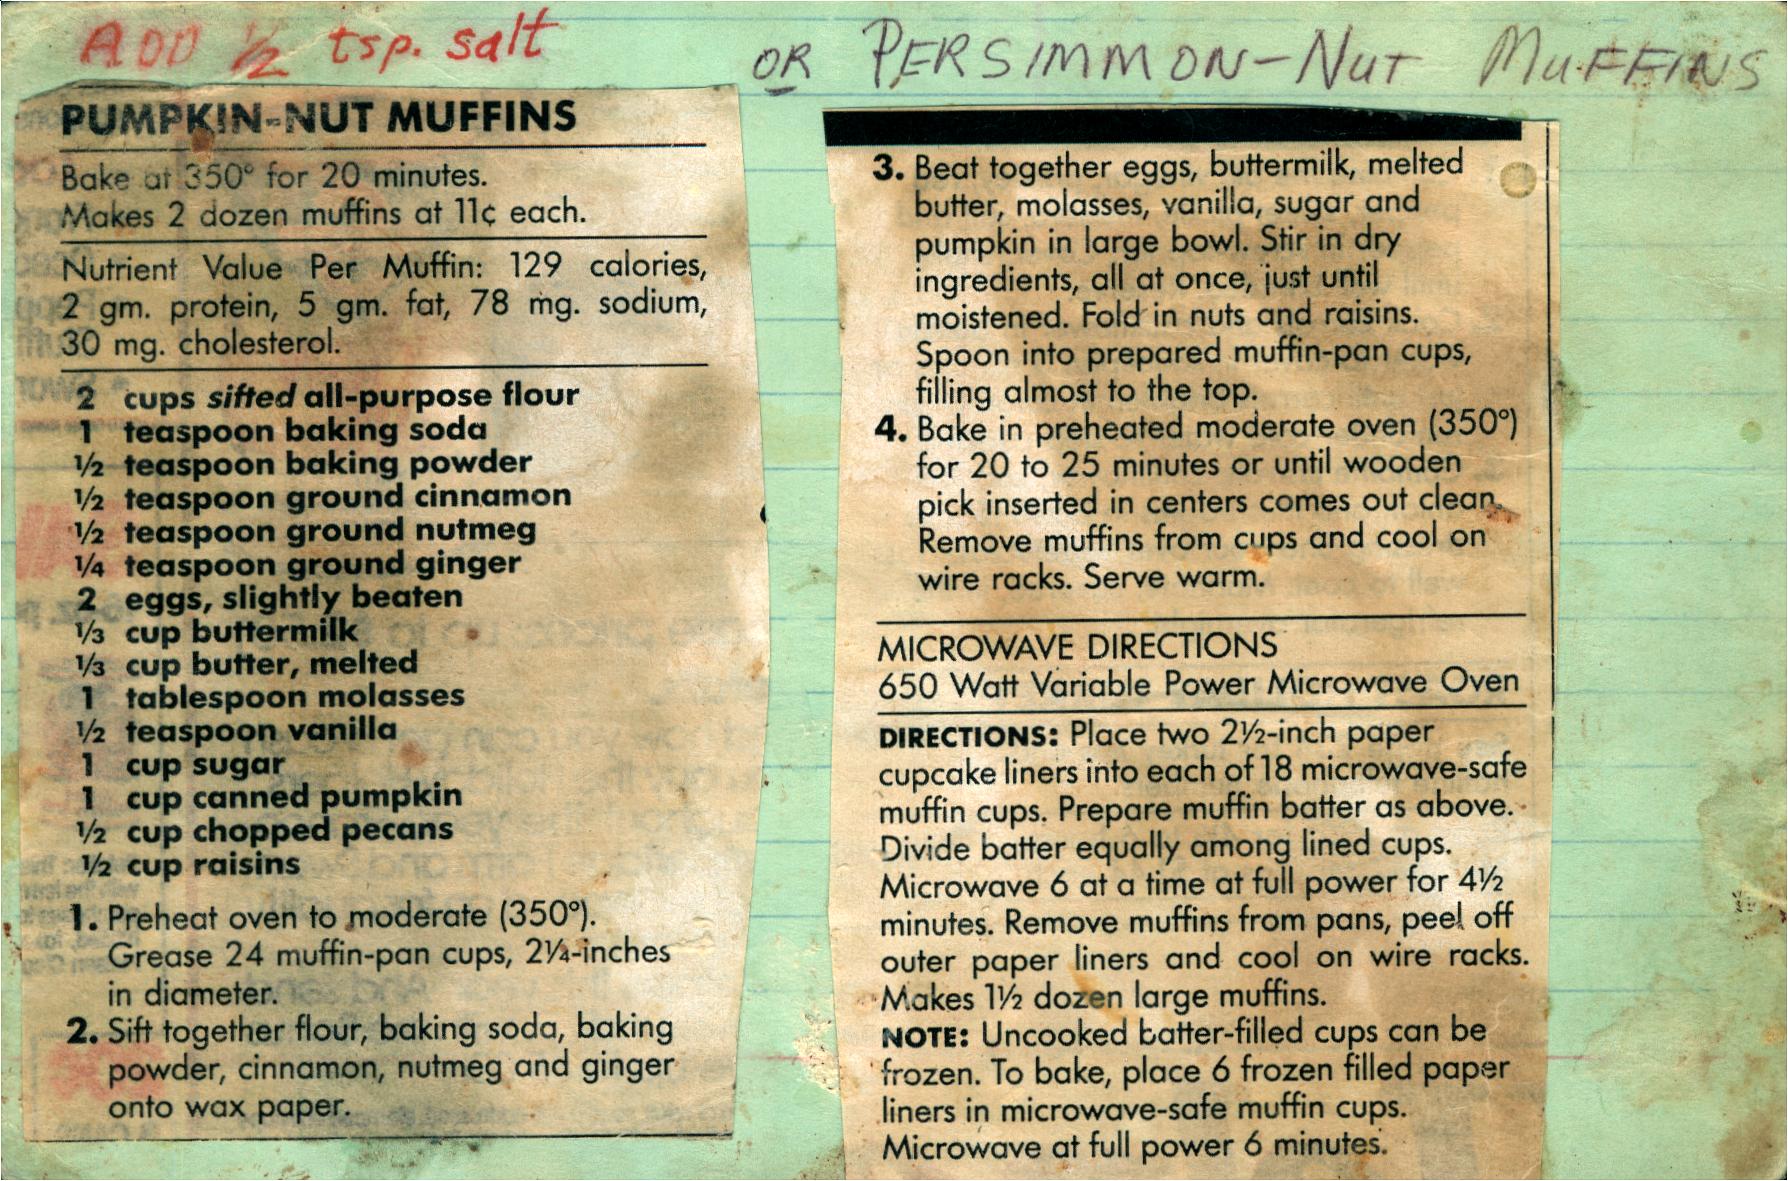 ADD ½ tsp. salt
OR PERSIMMON-NUT MUFFINS
PUMPKIN-NUT MUFFINS
Bake at 350° for 20 minutes.
Makes 2 dozen muffins at 11¢ each.
Nutrient Value Per Muffin: 129 calories,
2 gm. protein, 5 gm. fat, 78 mg. sodium,
30 mg. cholesterol.
2 cups sifted all-purpose flour
1 teaspoon baking soda
½ teaspoon baking powder
½ teaspoon ground cinnamon
½ teaspoon ground nutmeg
¼ teaspoon ground ginger
2 eggs, slightly beaten
⅓ cup buttermilk
⅓ cup butter, melted
1 tablespoon molasses
½ teaspoon vanilla
1 cup sugar
1 cup canned pumpkin
½ cup chopped pecans
½ cup raisins
1. Preheat oven to moderate (350°).
Grease 24 muffin-pan cups, 2¼-inches
in diameter.
2. Sift together flour, baking soda, baking
powder, cinnamon, nutmeg and ginger
onto wax paper.
3. Beat together eggs, buttermilk, melted
butter, molasses, vanilla, sugar and
pumpkin in large bowl. Stir in dry
ingredients, all at once, just until
moistened. Fold in nuts and raisins.
Spoon into prepared muffin-pan cups,
filling almost to the top.
4. Bake in preheated moderate oven (350°)
for 20 to 25 minutes or until wooden
pick inserted in centers comes out clean.
Remove muffins from cups and cool on
wire racks. Serve warm.
MICROWAVE DIRECTIONS
650 Watt Variable Power Microwave Oven
DIRECTIONS: Place two 2½-inch paper
cupcake liners into each of 18 microwave-safe
muffin cups. Prepare muffin batter as above.
Divide batter equally among lined cups.
Microwave 6 at a time at full power for 4½
minutes. Remove muffins from pans, peel off
outer paper liners and cool on wire racks.
Makes 1½ dozen large muffins.
NOTE: Uncooked batter-filled cups can be
frozen. To bake, place 6 frozen filled paper
liners in microwave-safe muffin cups.
Microwave at full power 6 minutes.